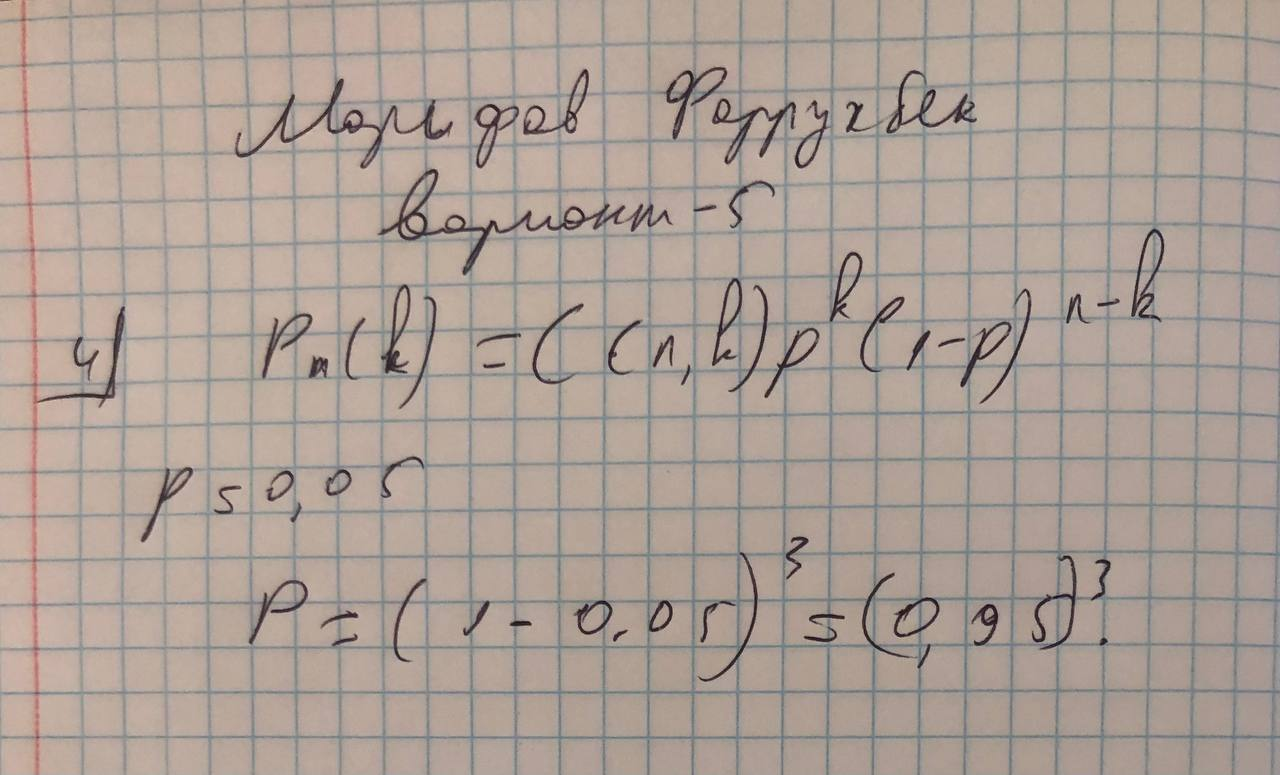 Марифов Фаррухбек
Вариант-5
4) Pn(k) = (C(n,k)p^k(1-p)^n-k
p = 0,05
P = (1-0.05)^3 = (0,95)^3.